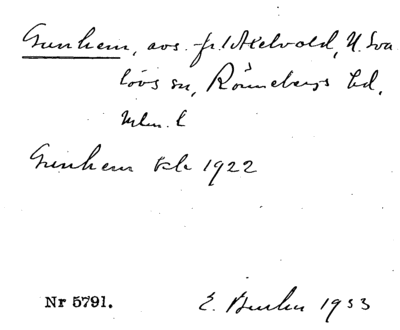 Gunhem, avs. fr. Axelvold, N. Sva
lövs sn, Rönnebergs hd,
Mlm. l
Gunhem Ek 1922
Nr 5791. E. 1953